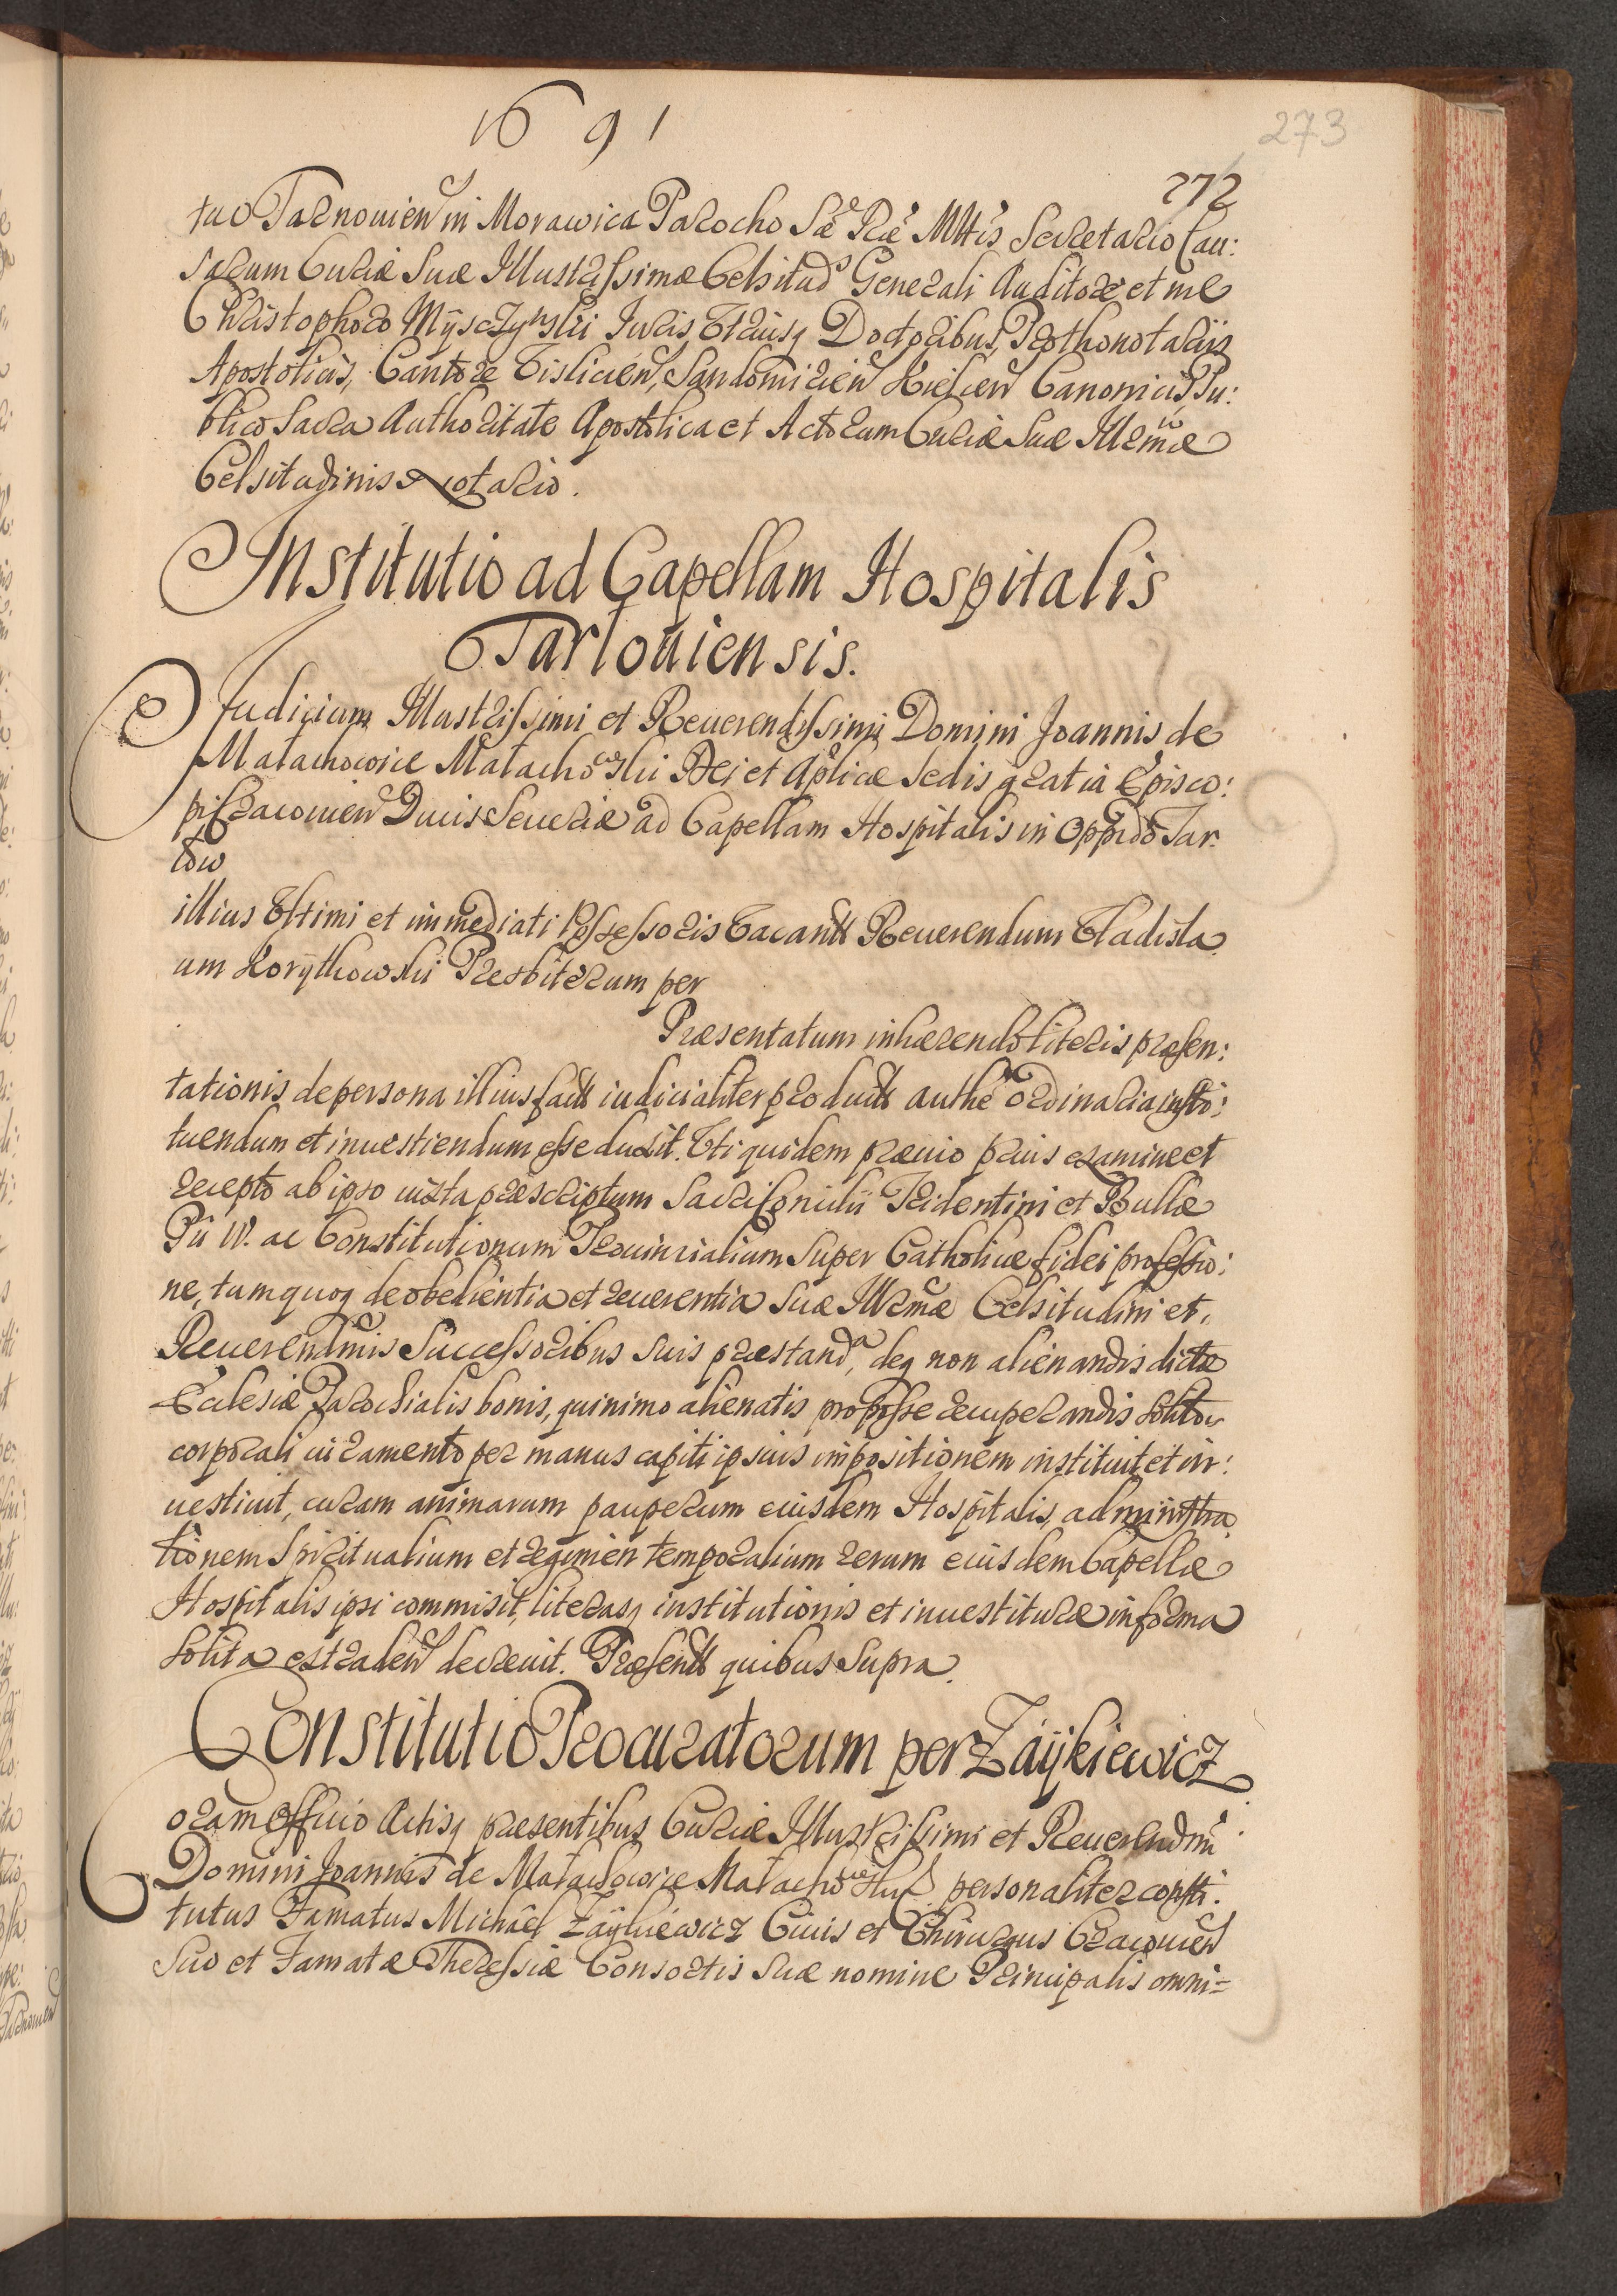 1691
273
272
tuo Tarnouien in Morawica Parocho Sae Rae Mttis Secretario Cau:
sarum Curiae Suae Illustrissimae Celsitud Generali Auditore et me
Christophoro Mÿsczynski Iuris Vtriusq Doctoribus, Prothonotariis
Apostolicis, Cantore Vislicien, Sandomirien Kielcen Canonicis, Pu:
blico Sacra Authoritate Apostolica et Actorum Curiae Suae Illrmae
Celsitudinis Notario.
Institutio ad Capellam Hospitalis
Tarlouiensis.
Iudicium Illustrissimi et Reuerendissimi Domini Joannis de
Małachowice Małachowski Dei et Aplicae Sedis gratia Episco:
pi Cracouien Ducis Seueriae ad Capellam Hospitalis in Oppido Tar:
low
illius Vltimi et immediati Possessoris Vacantt Reuerendum Vladisla
um Korÿtkowski Presbiterum per
Praesentatum inhaerendo literis praesen:
tationis de persona illius factt iudicialiter productt authe ordinaria insti:
tuendum et inuestiendum esse duxit. Vti quidem praeuio prius examine et
recepto ab ipso iuxta praescriptum Sacri Concilii Tridentini et Bullae
Pii IV. ac Constitutionum Prouincialium super Catholicae fidei professio:
ne, tumquoq de obedientia et reuerentia Suae Illrmae Celsitudini et
Reuerendmis Successoribus suis praestanda, deq non alienandis dictae
Ecclesiae Parochialis bonis, quinimo alienatis pro posse recuperandis solito
corporali iuramento per manus capiti ipsius impositionem instituit et in:
uestiuit, curam animarum pauperum eiusdem Hospitalis, administra
tionem Spiritualium et regimen temporalium rerum eiusdem Capellae
Hospitalis ipsi commisit, literasq institutionis et inuestiturae in forma
solita extraden decreuit. Praesentt quibus supra.
Constitutio Procuratorum per Zaÿkiewicz
Coram Officio Actisq praesentibus Curiae Illustrissimi et Reuerendmi
Domini Joannis de Małachowice Małachowski personaliter consti:
tutus Famatus Michael Zaÿkiewicz Ciuis et Chirurgus Cracouien
Suo et Famatae Theressiae Consortis suae nomine Principalis omni=